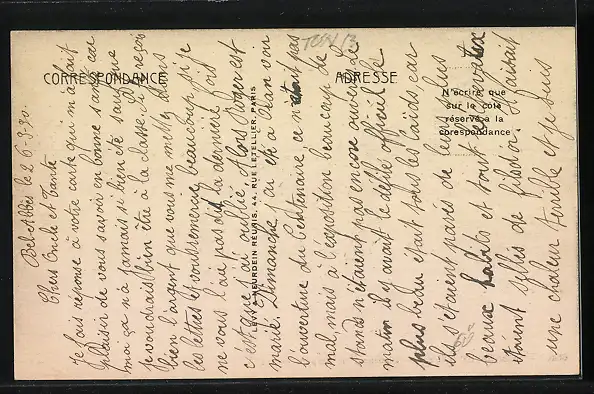 CORRESPONDANCE
ADRESSE
N'écrire que
sur le côté
réservé à la
correspondance
LEVY & NEURDEIN RÉUNIS, 44, RUE LETELLIER, PARIS
Bel-Abbès le 2-6-30.
Chers Oncle et Tante
Je fais réponse à votre carte qui m'a fait
plaisir de vous savoir en bonne santé car
moi ça n'a jamais si bien été seulement que
je voudrais bien être à la classe. J'ai reçois
bien l'argent que vous me mettez dans
les lettres et vous remercie beaucoup, si je
ne vous l'ai pas dit la dernière fois
c'est que j'ai oublié, Alors Roger est
marié. Dimanche j'ai été à Oran voir
l'ouverture du Centenaire ce n'était pas
mal mais à l'exposition beaucoup de
stands n'étaient pas encore ouverts. Le
matin il y avait le défilé officiel le
plus beau était tous les Caïds car
ils s'étaient parés de leurs plus
beaux habits et tout leurs chevaux
étaient sellés de filed'or. Il faisait
une chaleur terrible et je suis